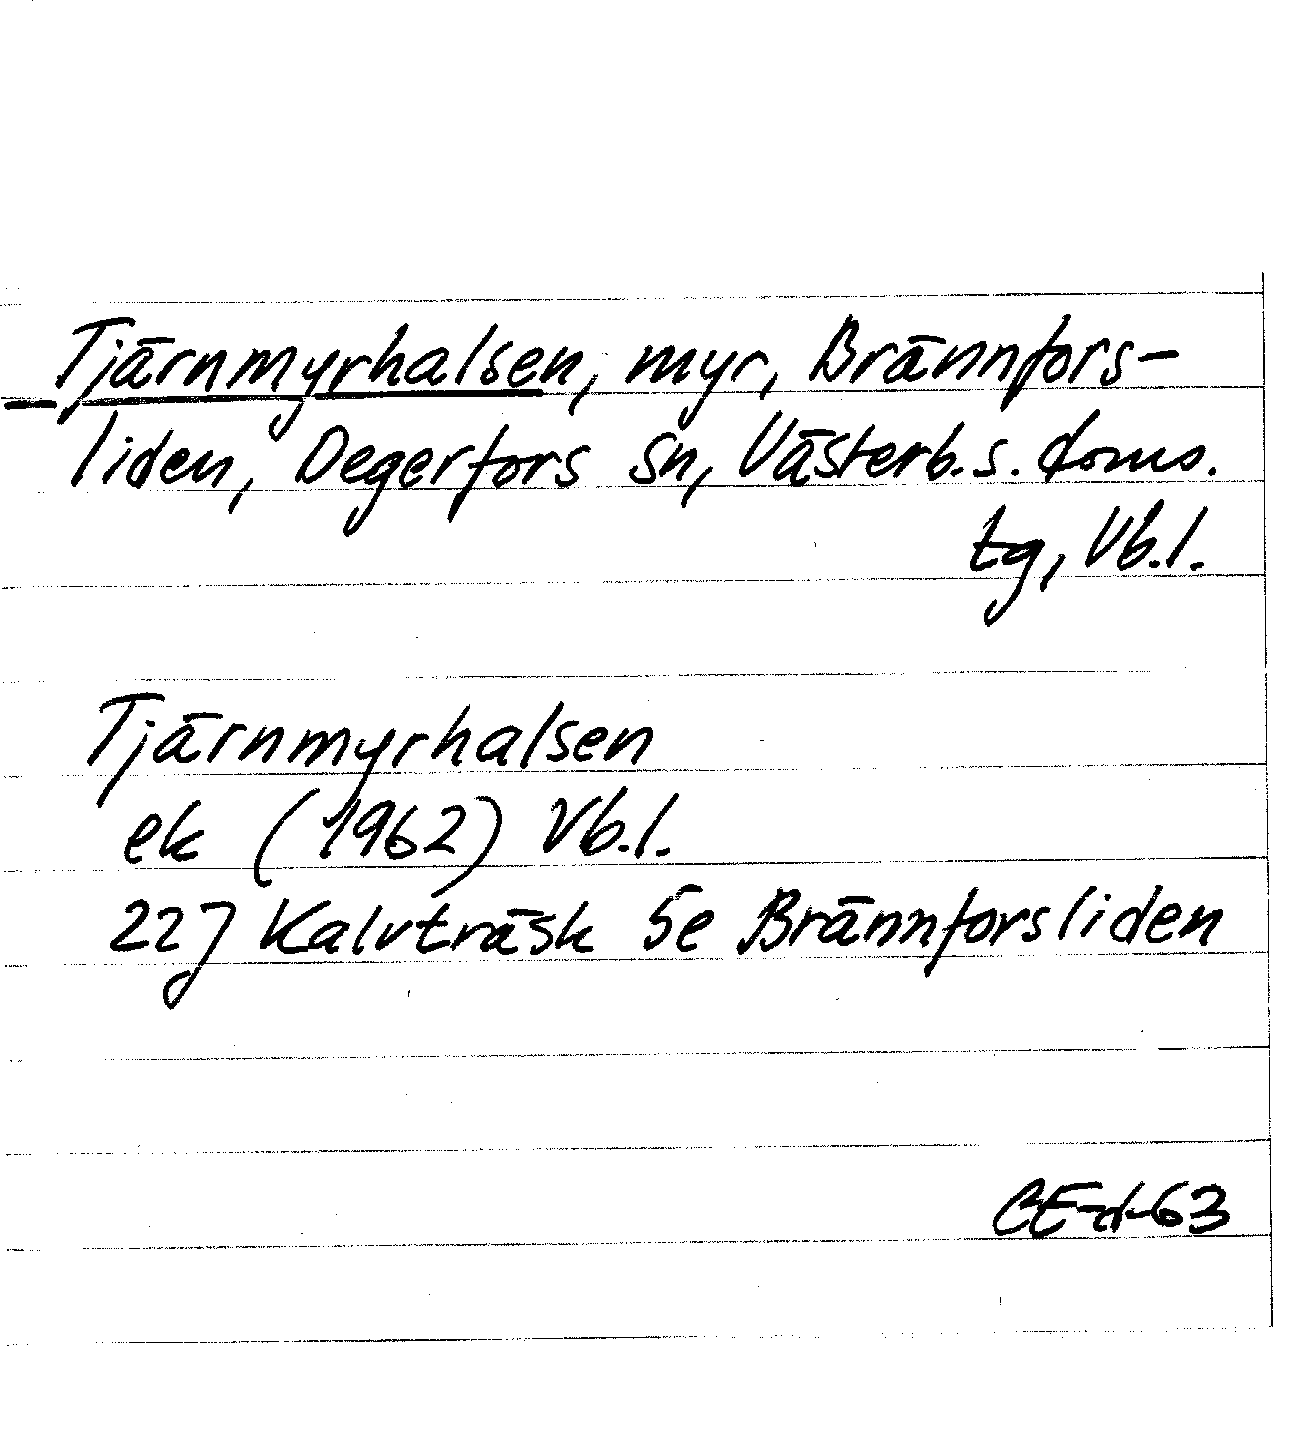 Tjärnmyrhalsen, myr, Brännfors-
liden, Degerfors sn, Västerb.s. doms.
tg, Vb.l.
Tjärnmyrhalsen
ek (1962) Vb.l.
22J Kalvträsk 5e Brännforsliden
CE-d-63